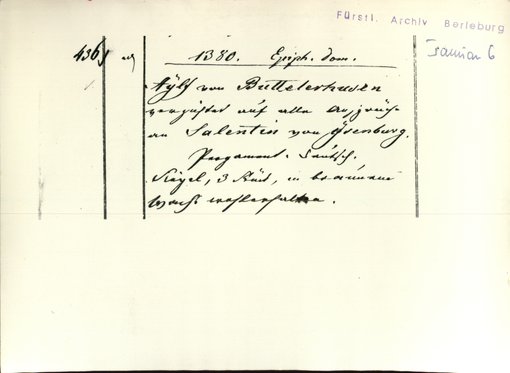 Fürstl. Archiv Berleburg
Januar 6
436
1380. Epiph. dom.
von Büttelerhusen
verzichtet auf alle Ansprüche
an Salentin von Ysenburg.
Pergament. Deutsch.
Siegel, 3 Stück, in braunem
Wachs wohlerhalten.